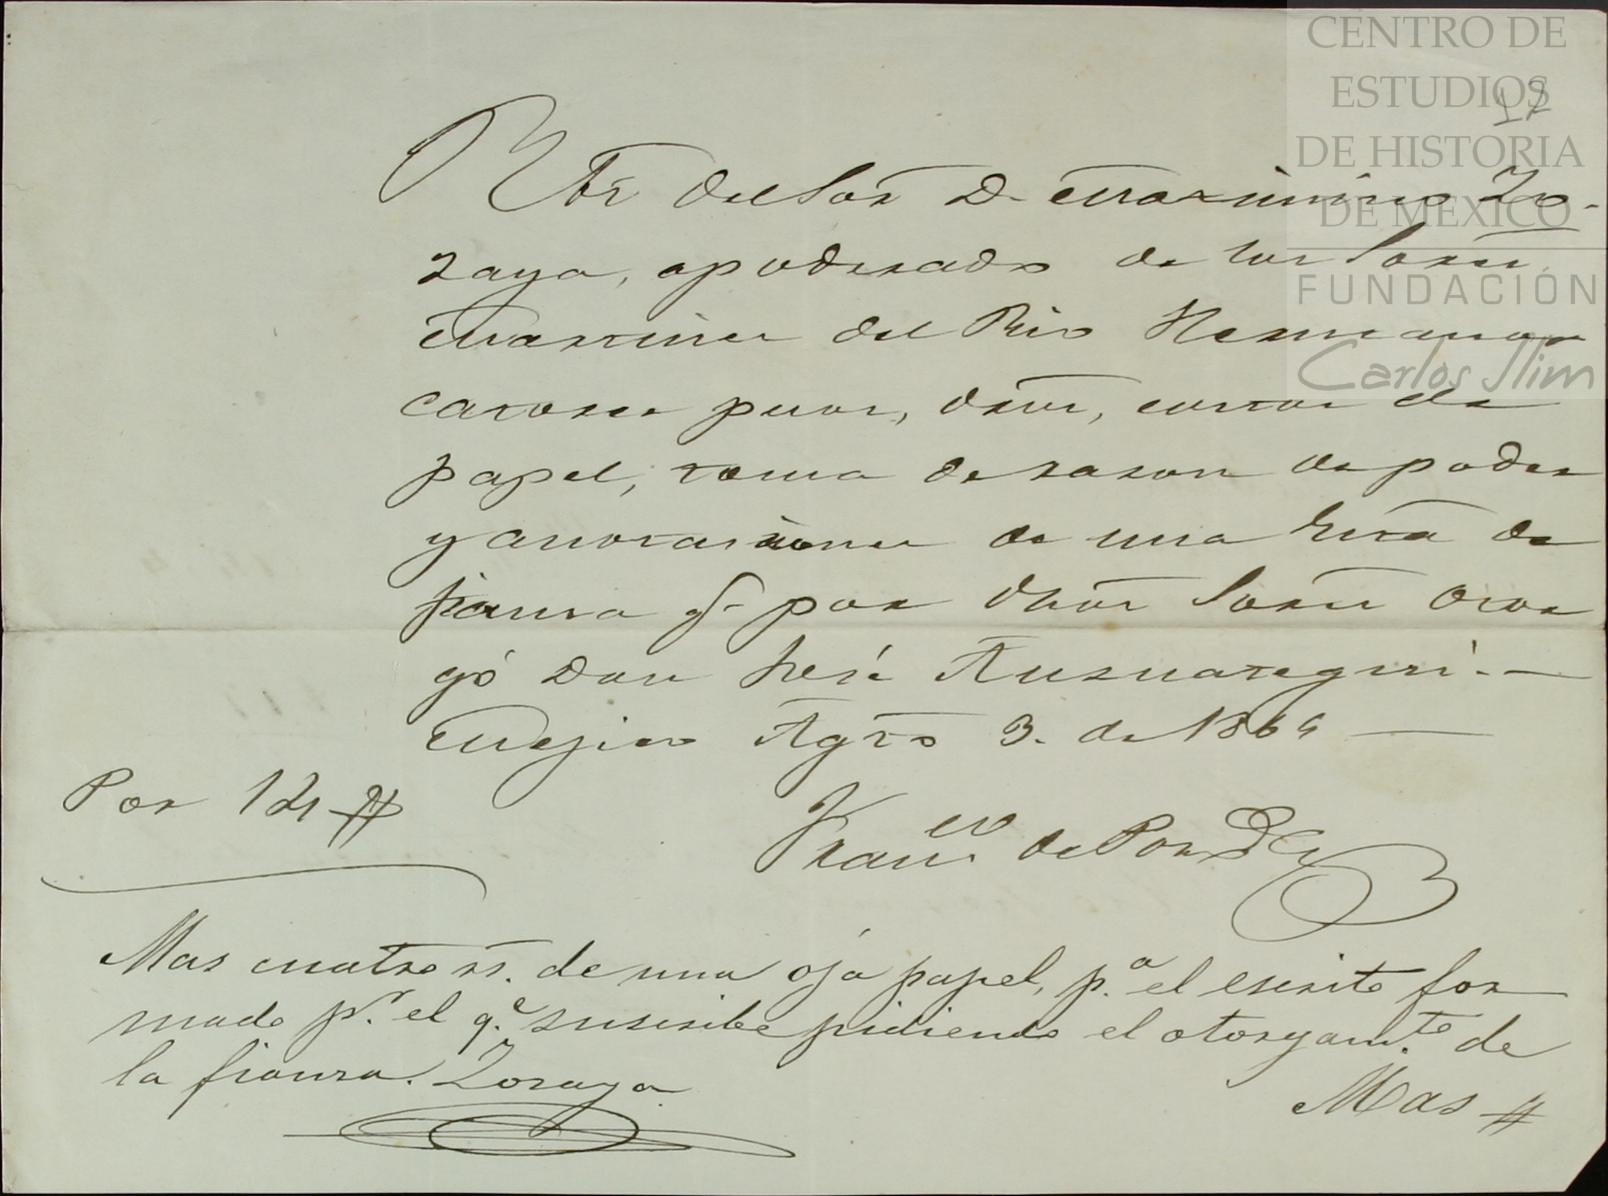 CENTRO DE
ESTUDIOS
DE HISTORIA
DE MÉXICO
FUNDACIÓN
Carlos Slim
17
Rbí del Sor. D. Maximino Zo-
zaya, apoderado de los Sores.
Martinez del Rio Hermanos
catorce pesos, dros, costos de
papel, toma de razon de poder
y anotaciones de una Escra. de
fianza q. por dhos Sores. otor
gó Don José Ausuategui.—
Mejico Agto 3. de 1864 —
Por 14 #
Franco. de Por
Mas cuatro rs. de una oja papel, pa. el escrito for
mado pr. el qe. suscribe pidiendo el otorgamto. de
la fianza. Zozaya
Mas #